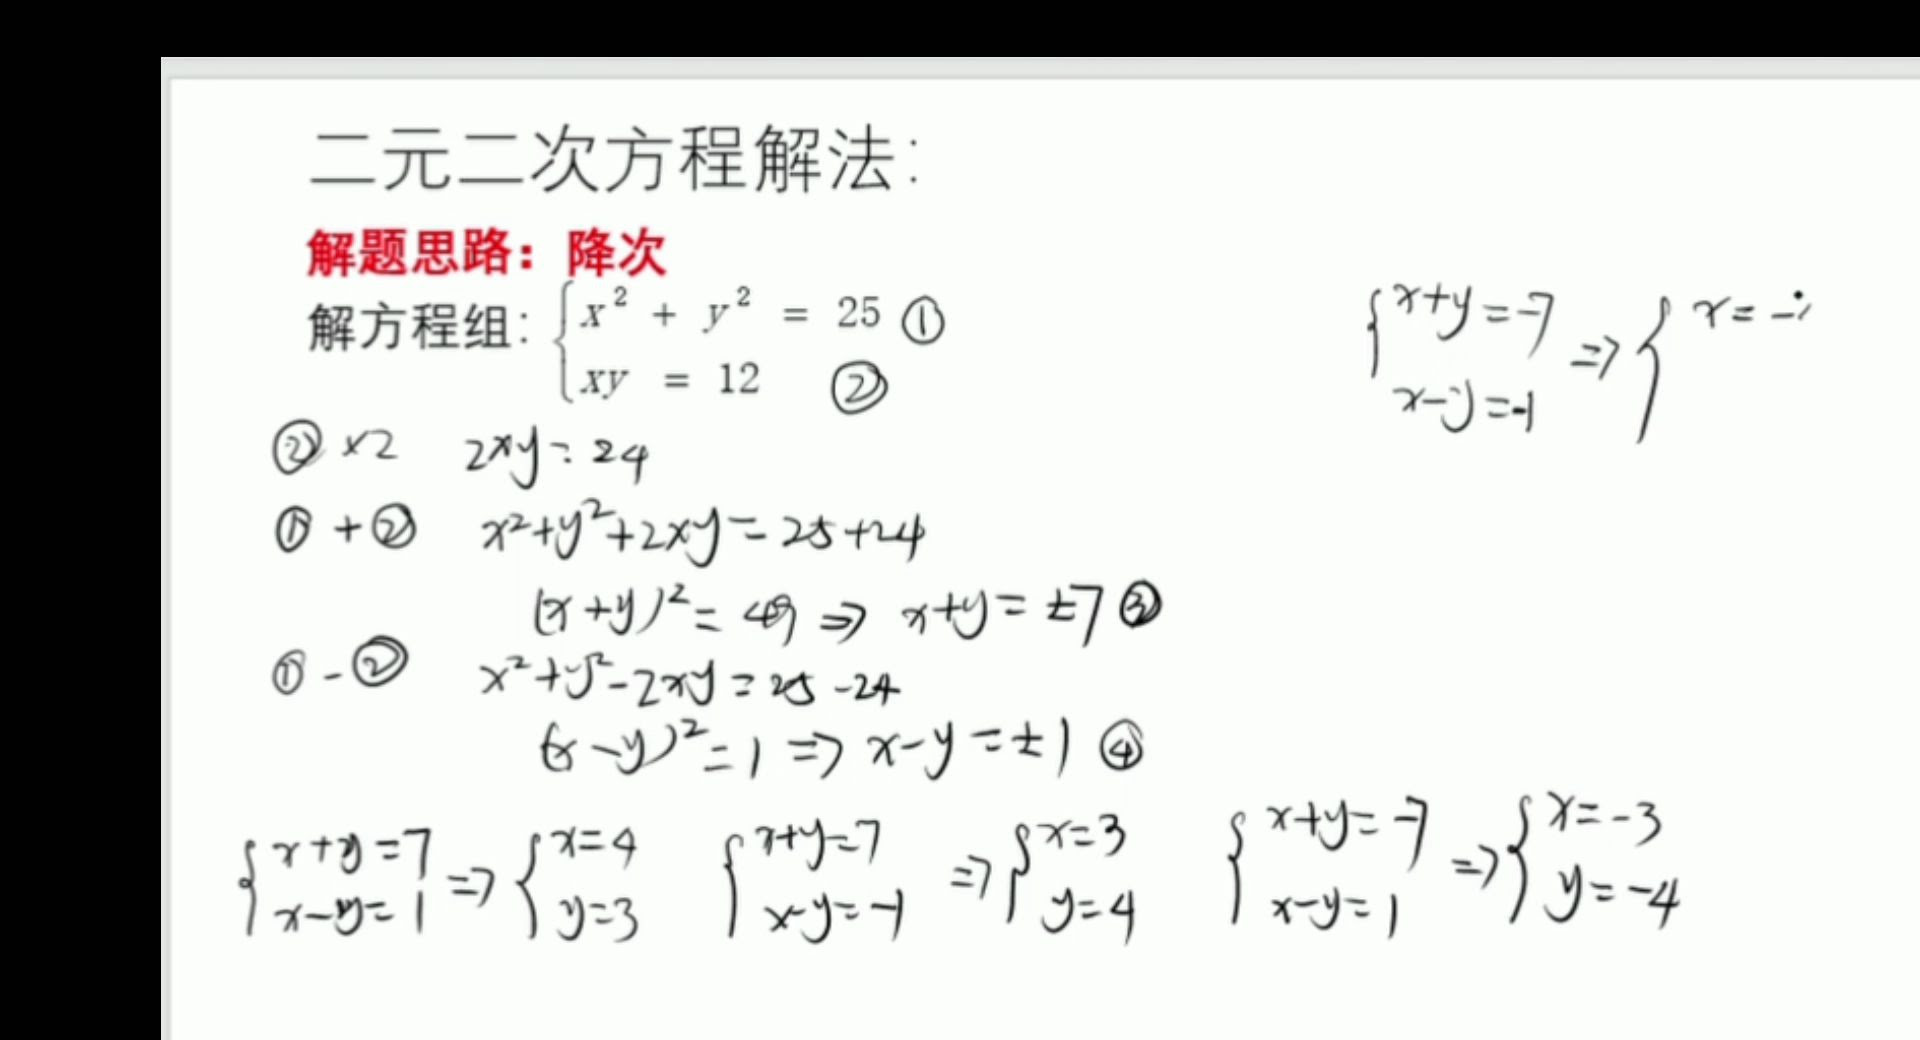 二元二次方程解法：
解题思路：降次
解方程组：{x² + y² = 25 ①
xy = 12 ②
② ×2 2xy = 24
① + ② x²+y²+2xy = 25+24
(x+y)² = 49 => x+y = ±7 ③
① - ② x²+y²-2xy = 25-24
(x-y)² = 1 => x-y = ±1 ④
{x+y=7 => {x=4
x-y=1 y=3
{x+y=7 => {x=3
x-y=-1 y=4
{x+y=-7 => {x=-3
x-y=1 y=-4
{x+y=-7 => {x=-
x-y=-1